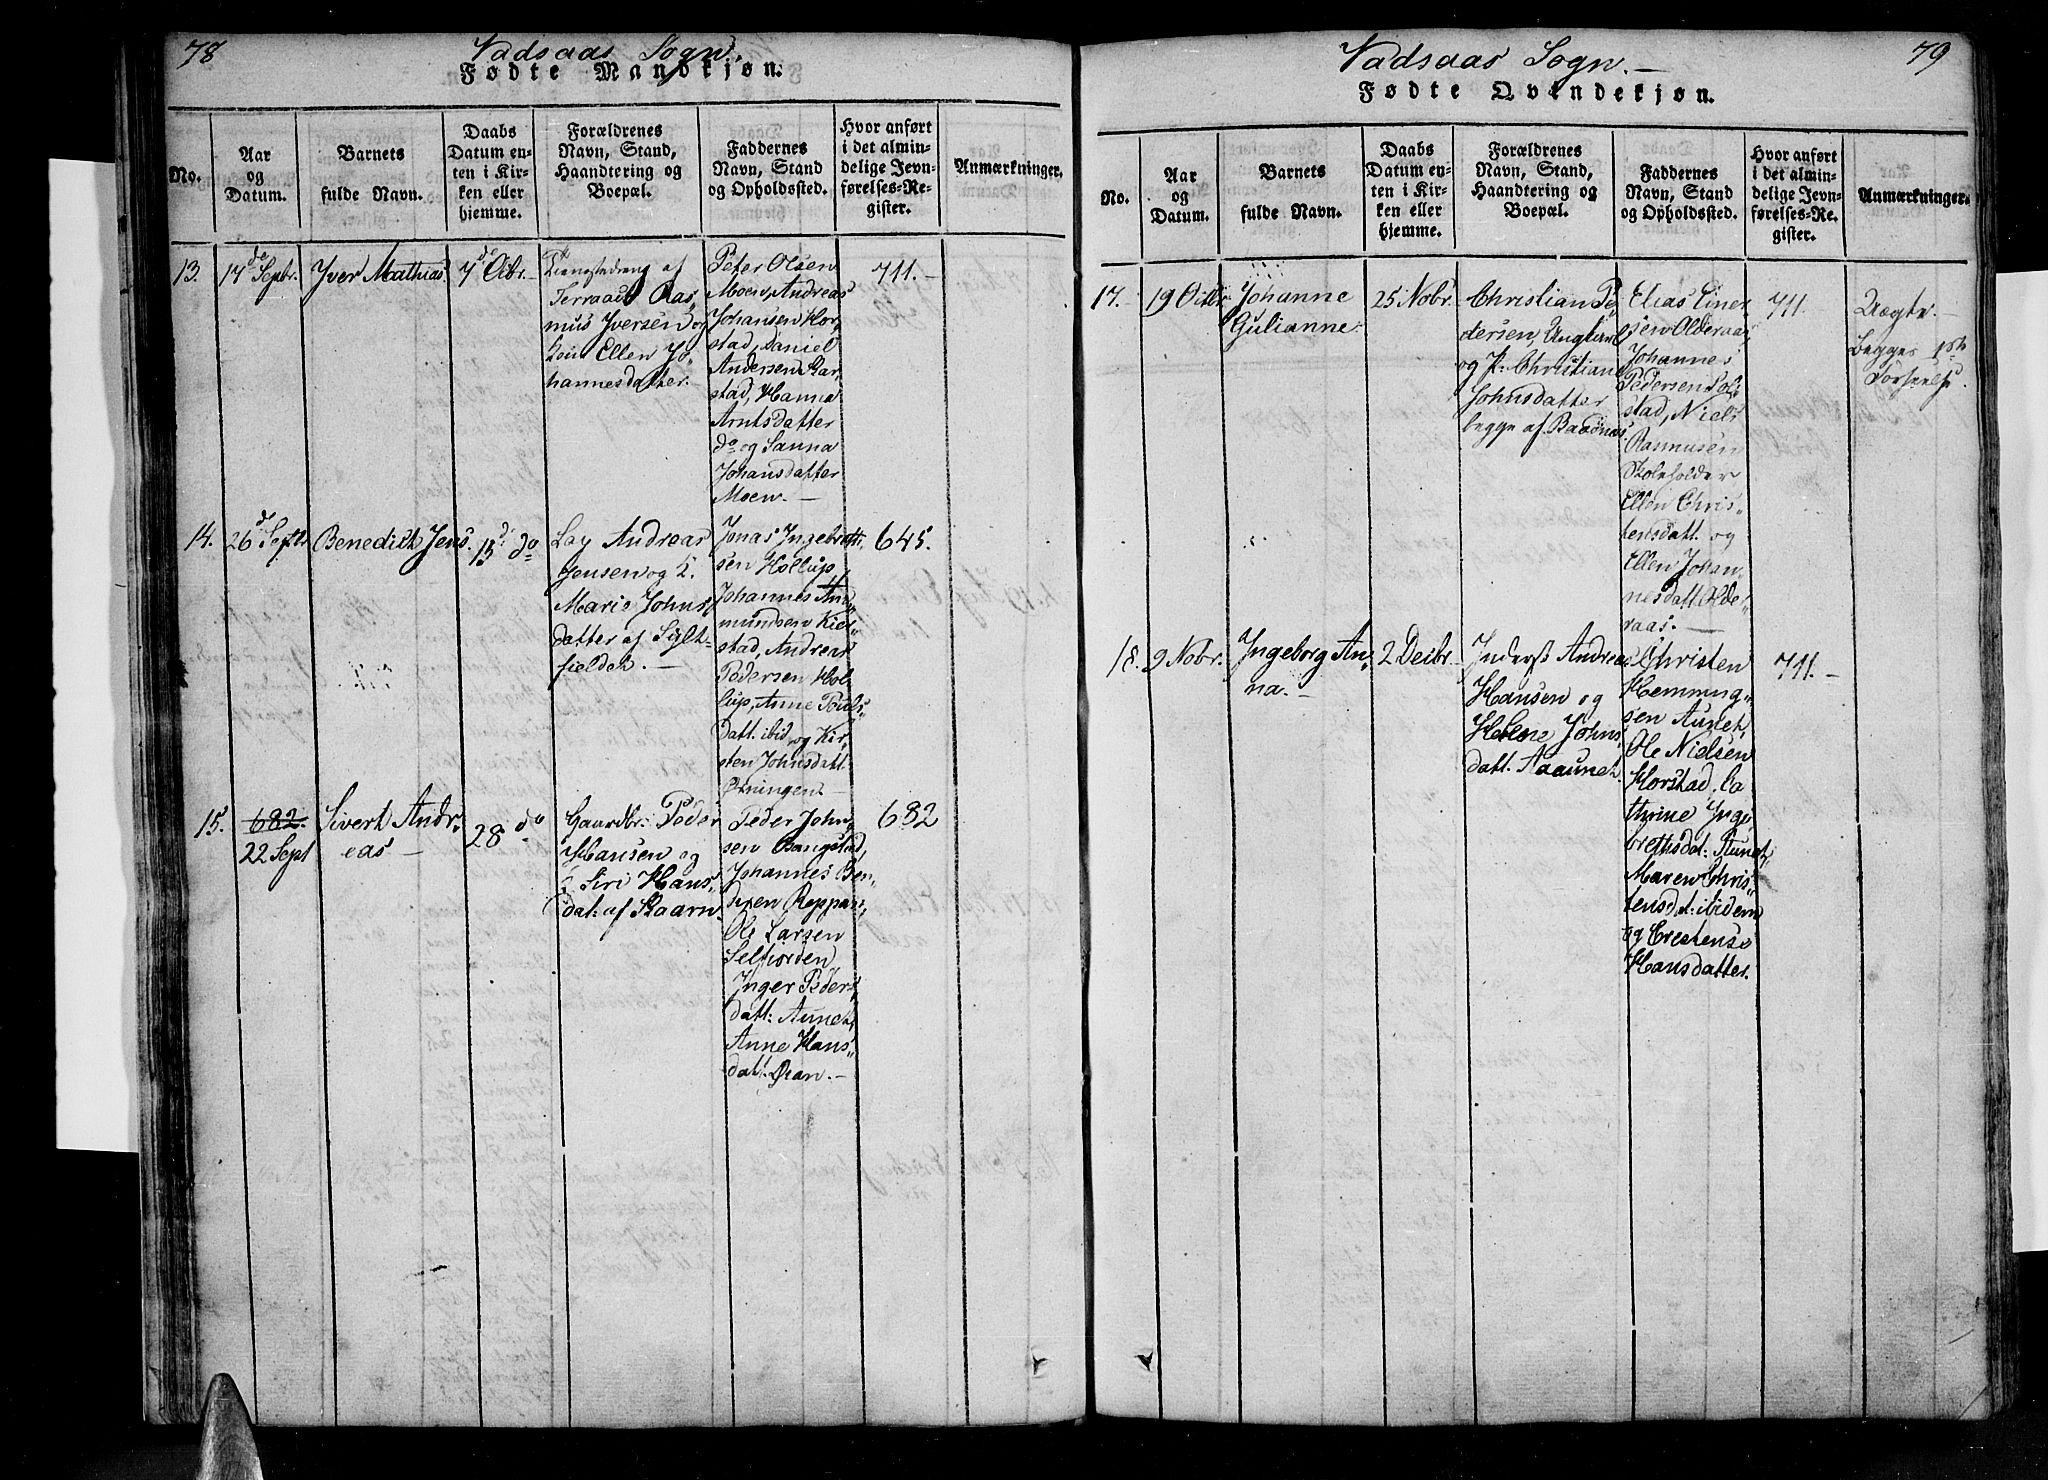 78
Vadsaas Sogn.
Fødte Mandkjøn.
No.
Aar
og
Datum.
Barnets
fulde Navn.
Daabs
Datum en-
ten i Kir-
ken eller
hjemme.
Forældrenes
Navn, Stand,
Haandtering og
Boepæl.
Faddernes
Navn, Stand
og Opholdssted.
Hvor anført
i det almin-
delige Jevn-
førelses-Re-
gister.
Anmærkninger.
13.
17de Septbr.
Yver Mathias
7d Octbr.
af
Ras,
mus Yversen og
Kone Ellen Jo,,
hannesdatter.
Peter Olsen
Moen, Andreas
Johansen Hor,
stad, Daniel
Andersen Kar,
stad, Hanna
Arntsdatter
do og Sanna
Johansdatter
Moen. —
711. —
14.
26d Septbr
Benedict Jens.
13d do
Andreas
Jensen og K.
Marie Johns,
datter af
fieldet. —
Jonas Ingebrett,,
sen Hollup
Johannes Am,,
mundsen Kier,,
stad, Andreas
Pedersen Hol,,
lup, Anne Pouls,,
datt. ibid, og Kir,,
sten Johnsdatt.
645.
15.
682.
22 Sept
Sivert Andr,,
eas —
28 do
Gaardbr: Peder
Hansen og
K Siri Hans,,
dat: af
Peder John,,
sen Bangstad,
Johannes Ben,,
dsen Reppen,
Ole Larsen
Selfiorden
Inger Peders,,
datt: Aunet,
Anne Hans,,
datt. Øran. —
682
79
Vadsaas Sogn. —
Fødte Qvindekjøn.
No.
Aar
og
Datum.
Barnets
fulde Navn.
Daabs
Datum en-
ten i Kir-
ken eller
hjemme.
Forældrenes
Navn, Stand,
Haandtering og
Boepæl.
Faddernes
Navn, Stand
og Opholdssted.
Hvor anført
i det almin-
delige Jevn-
førelses-Re-
gister.
Anmærkninger.
17.
19 Octbr
Johanne
Gulianne.
25 Nobr.
Christian Pe,,
dersen, Ungkarl
og P: Christiane
Johnsdatter
begge af
Elias Einer,,
sen Olderaas,
Johannes
Pedersen Sol,,
stad, Niels
Rasmusen
Skoleholder
Ellen Chris,,
tensdatt. og
Ellen Johan,,
nesdatt. Olde,,
raas. —
711.
Uægte. —
begges 1ste
Forseelse.
18.
9 Nobr.
Ingeborg An,,
na. —
2 Decbr.
Inderst Andreas
Hansen og
Helene Johns,,
datt. Aaunet.
Christen
Hemming,,
sen Aunet,
Ole Nielsen
Horstad, Ca,,
thrine Inge,,
brethsdat: Aunet,
Maren Chris,,
tensdat: ibidem
og Crestense
Hansdatter.
711. —